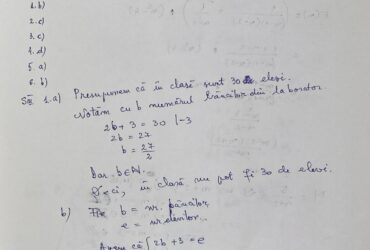 1. b)
2. c)
3. c)
4. d)
5. a)
6. b)
1. a) Presupunem că în clasă sunt 30 de elevi.
Notăm cu b numărul băncilor din laborator
2b + 3 = 30 |-3
2b = 27
b = 27/2
dar b∈N.
Deci, în clasă nu pot fi 30 de elevi.
b) b = nr. băncilor
e = nr. elevilor
Avem că { 2b + 3 = e